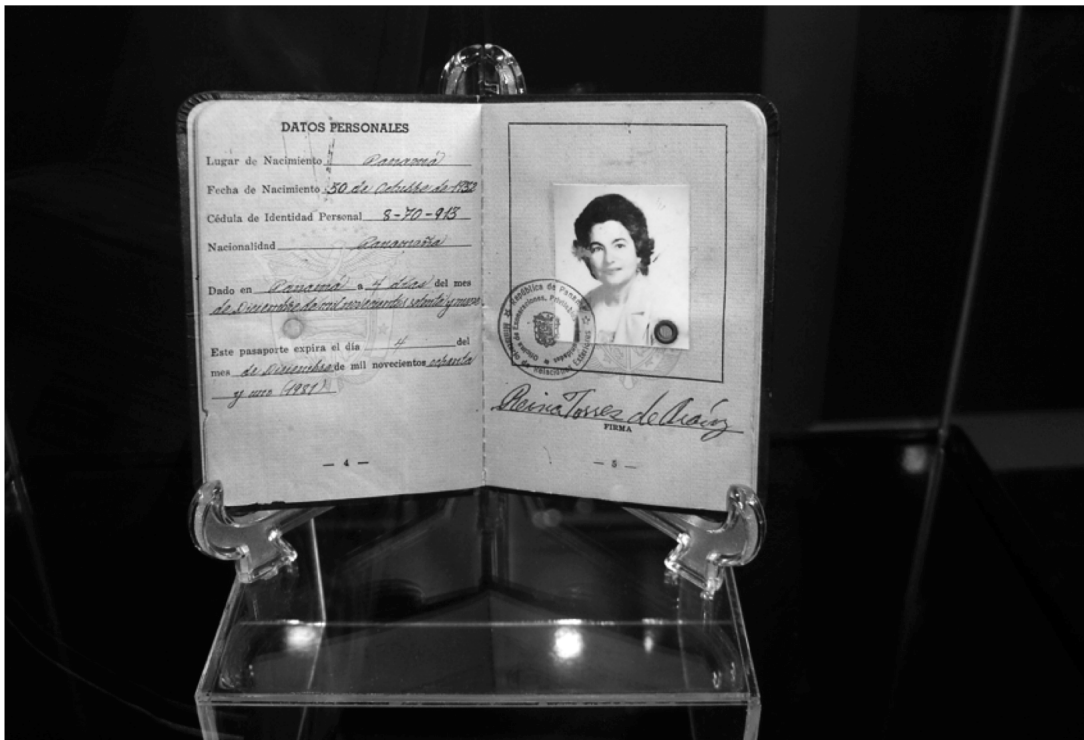 DATOS PERSONALES
Lugar de Nacimiento Panamá
Fecha de Nacimiento 30 de Octubre de 1932
Cédula de Identidad Personal 8-70-913
Nacionalidad Panameña
Dado en Panamá a 4 días del mes
de Diciembre de mil novecientos setenta y nueve
Este pasaporte expira el día 4 del
mes de Diciembre de mil novecientos ochenta
y uno (1981)
— 4 —
República de Panamá
Ministerio de Relaciones Exteriores
Reina Torres de Araúz
FIRMA
— 5 —